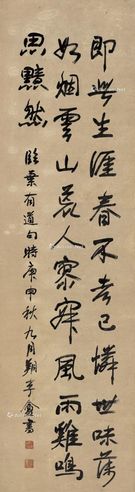 即此生涯春不老已憐世味薄
如烟雲山荒人寥寂風雨雞鳴
思黯然
臨葉有道句時庚申秋九月鄭書